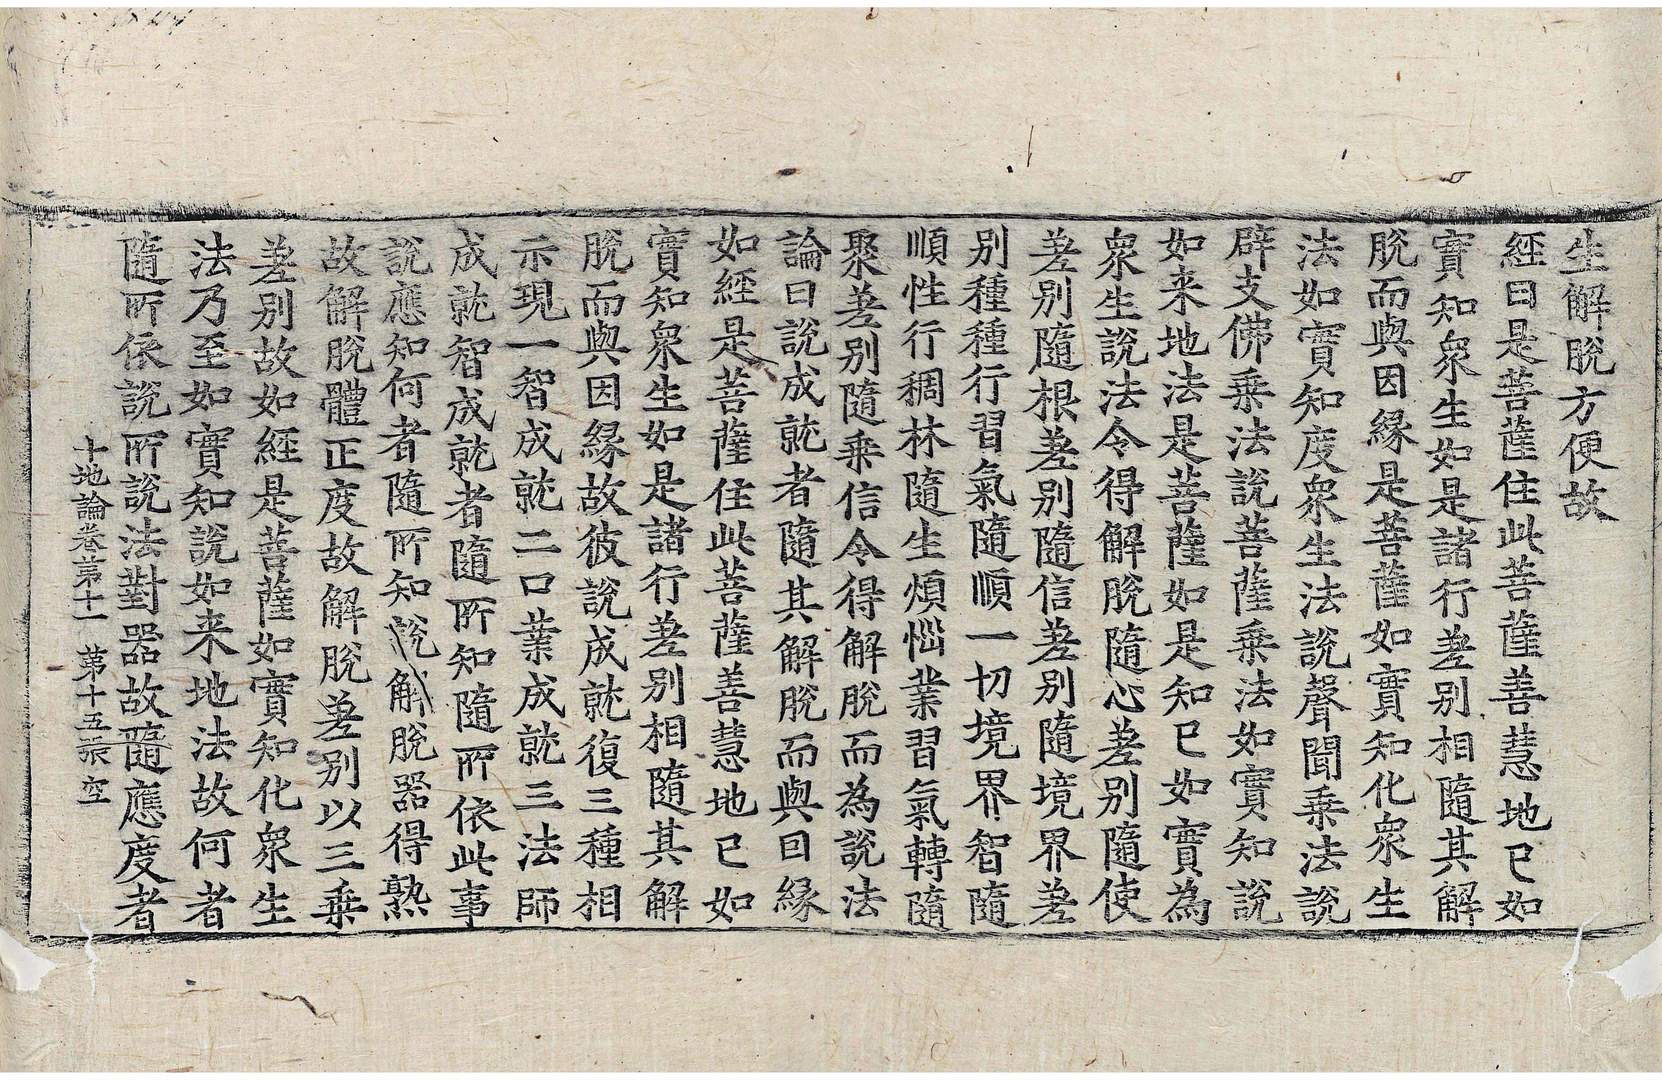 生解脫方便故
經曰是菩薩住此菩薩善慧地已如
實知衆生如是諸行差別相隨其解
脫而與因緣是菩薩如實知化衆生
法如實知度衆生法說聲聞乗法說
辟支佛乗法說菩薩乗法如實知說
如来地法是菩薩如是知已如實為
衆生說法令得解脫隨心差別隨使
差別隨根差別隨信差別隨境界差
別種種行習氣隨順一切境界智隨
順性行稠林隨生煩惱業習氣轉隨
聚差別隨乗信令得解脫而為說法
論曰說成就者隨其解脫而與因緣
如經是菩薩住此菩薩善慧地已如
實知衆生如是諸行差別相隨其解
脫而與因緣故彼說成就復三種相
示現一智成就二口業成就三法師
成就智成就者隨所知隨所依此事
說應知何者隨所知說解脫器得熟
故解脫體正度故解脫差別以三乗
差別故如經是菩薩如實知化衆生
法乃至如實知說如来地法故何者
隨所依說所說法對器故隨應度者
十地論卷第十一 第十五張 空